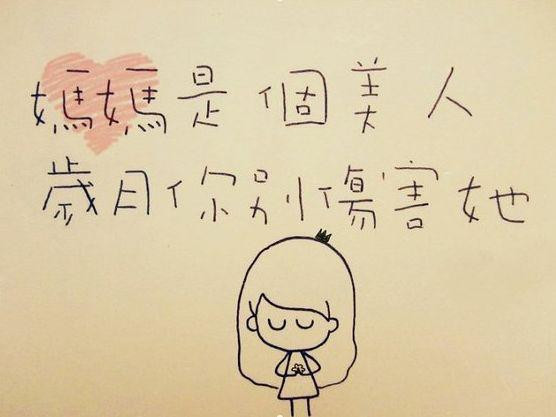 媽媽是個美人
歲月你別傷害她